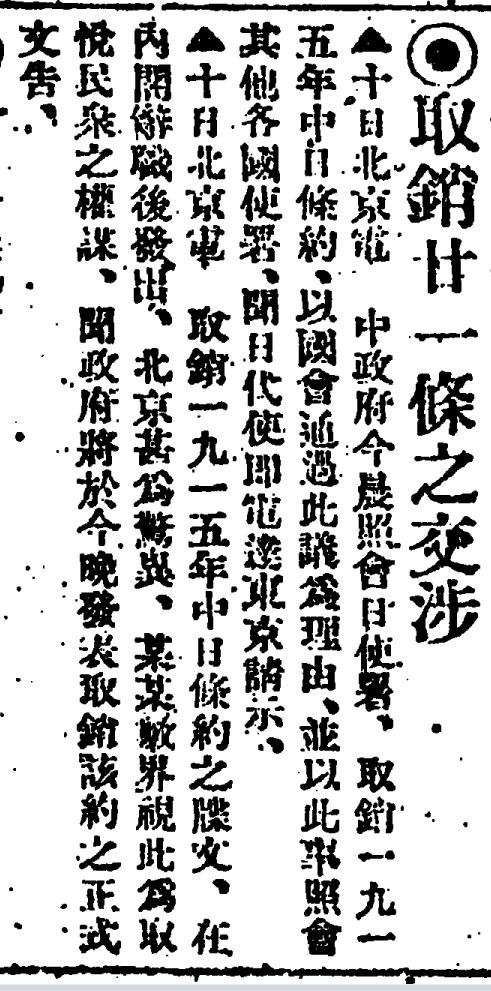 ◉取銷廿一條之交涉
▲十日北京電　中政府今晨照會日使署、取銷一九一
五年中日條約、以國會通過此議爲理由、並以此舉照會
其他各國使署、聞日代使即電達東京請示、
▲十日北京電　取銷一九一五年中日條約之牒文、在
內閣辭職後發出、北京甚爲驚異、某某政界視此爲取
悅民衆之權謀、聞政府將於今晚發表取銷該約之正式
文吿、